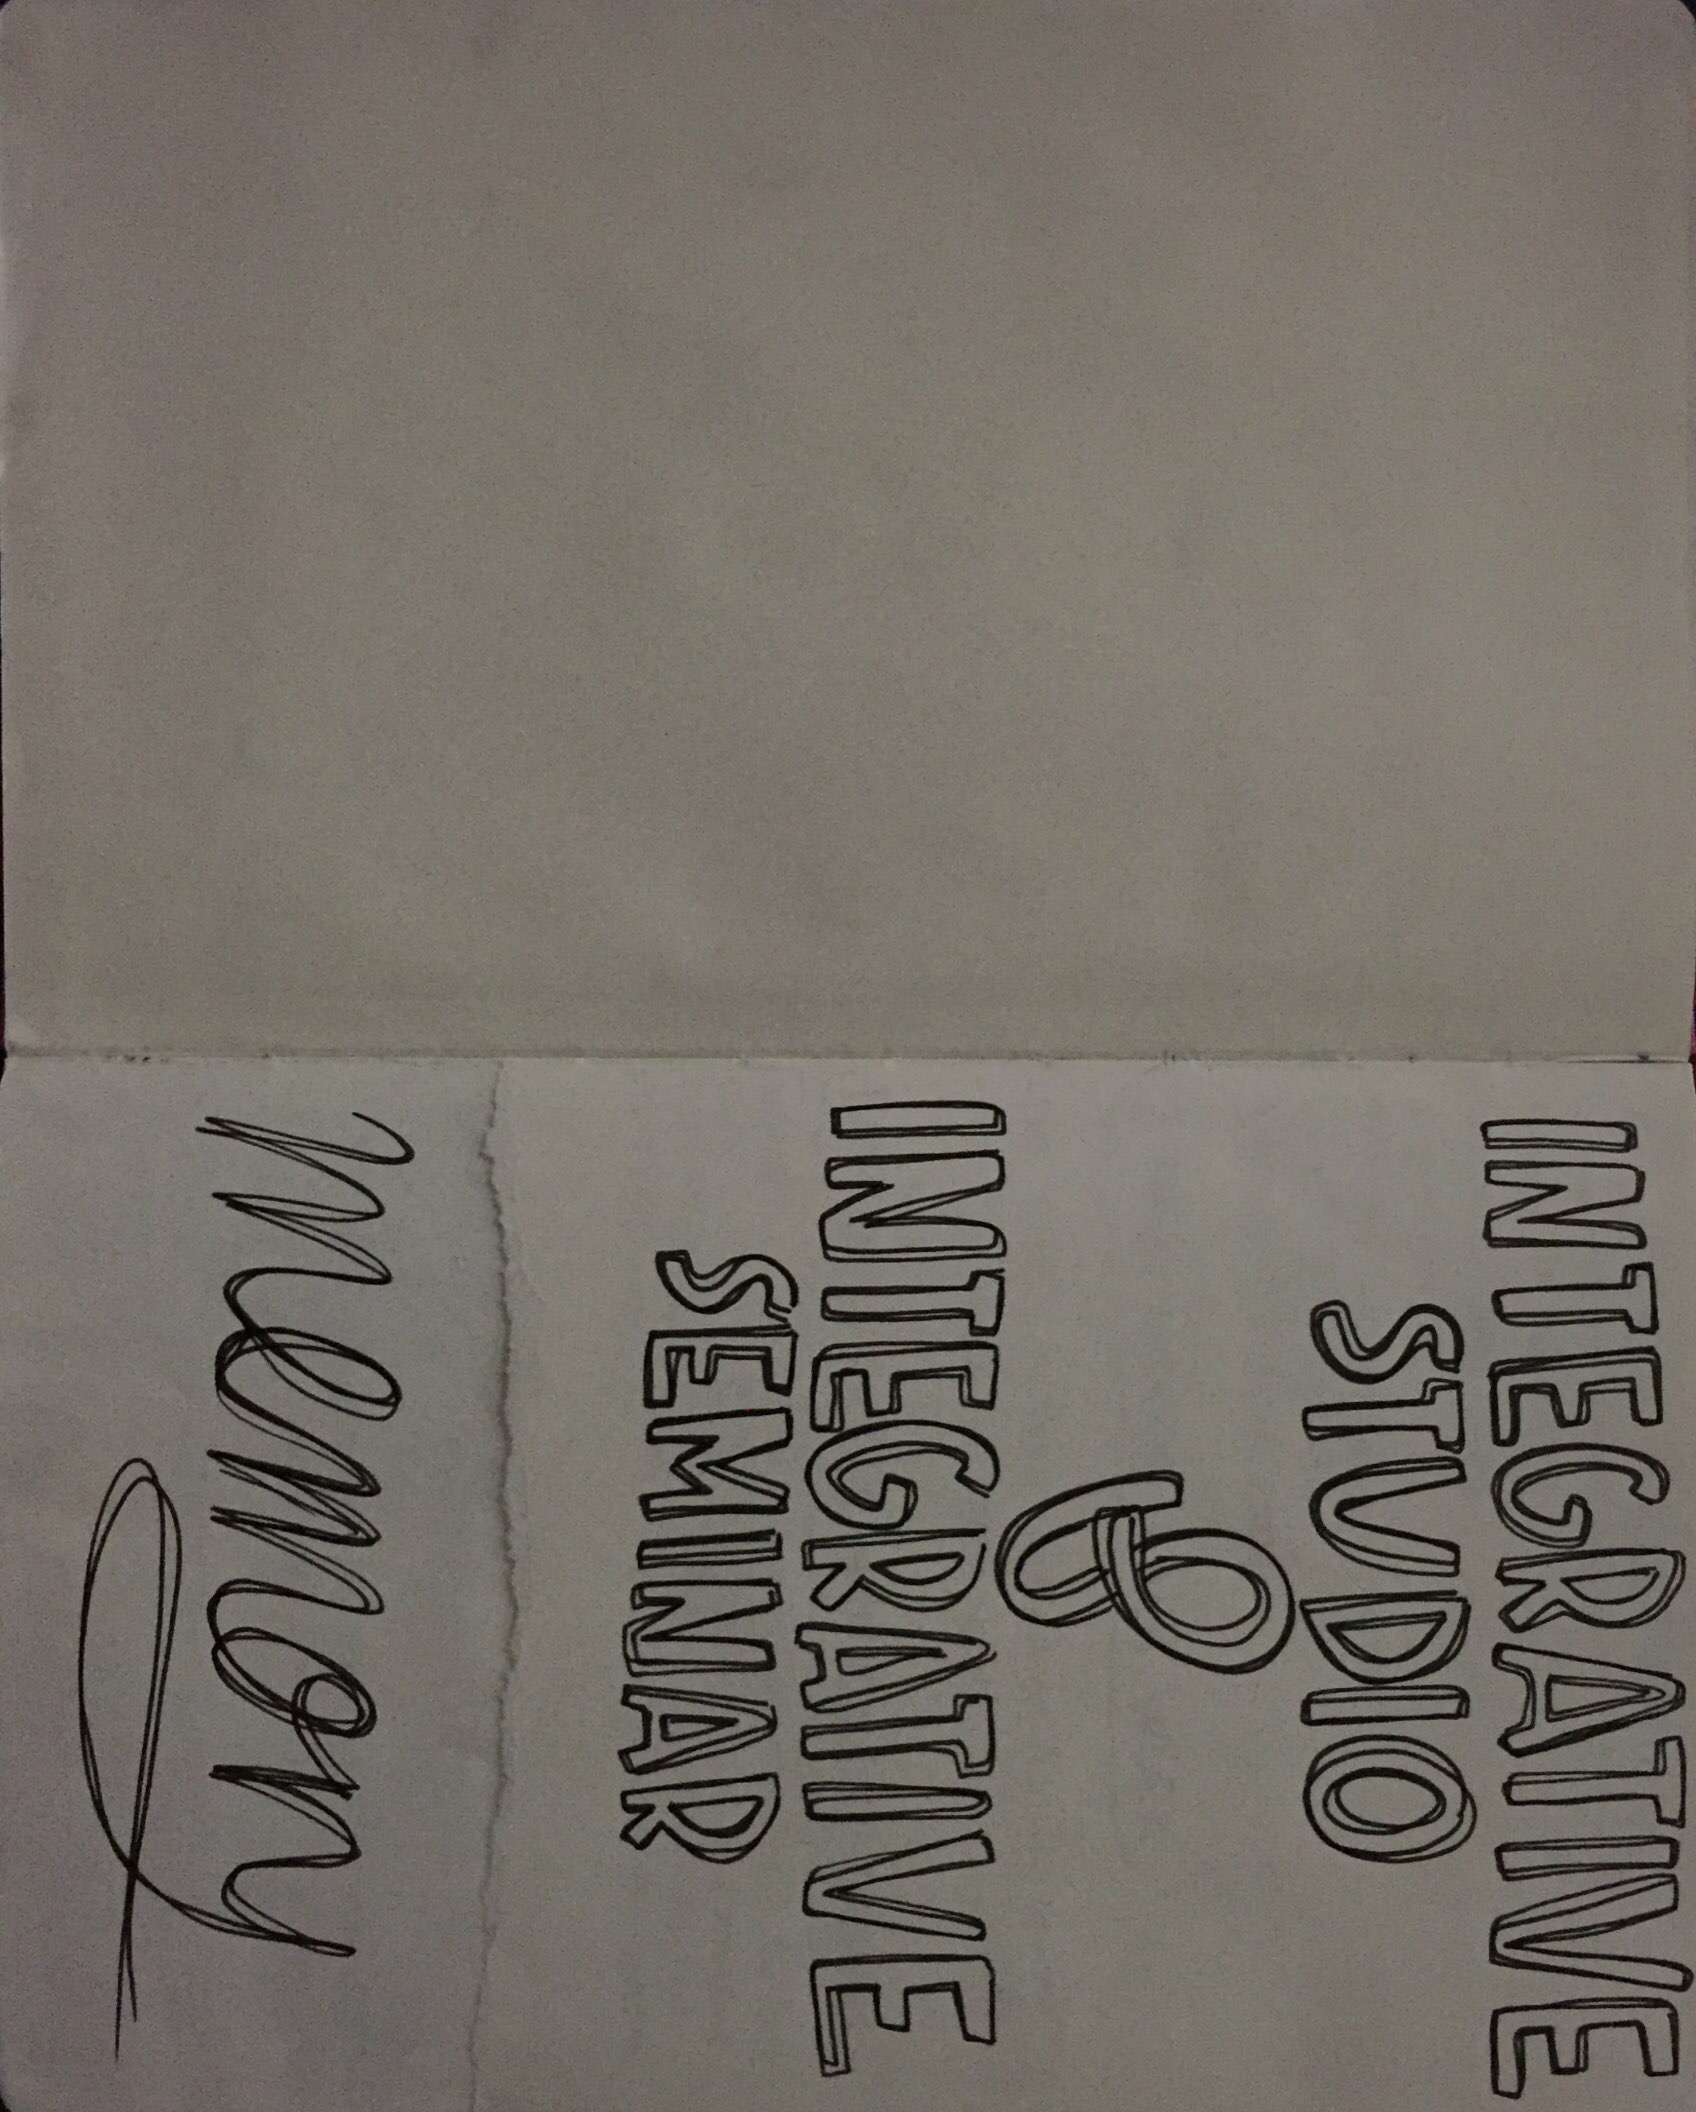 INTEGRATIVE
STUDIO
&
INTEGRATIVE
SEMINAR
memory